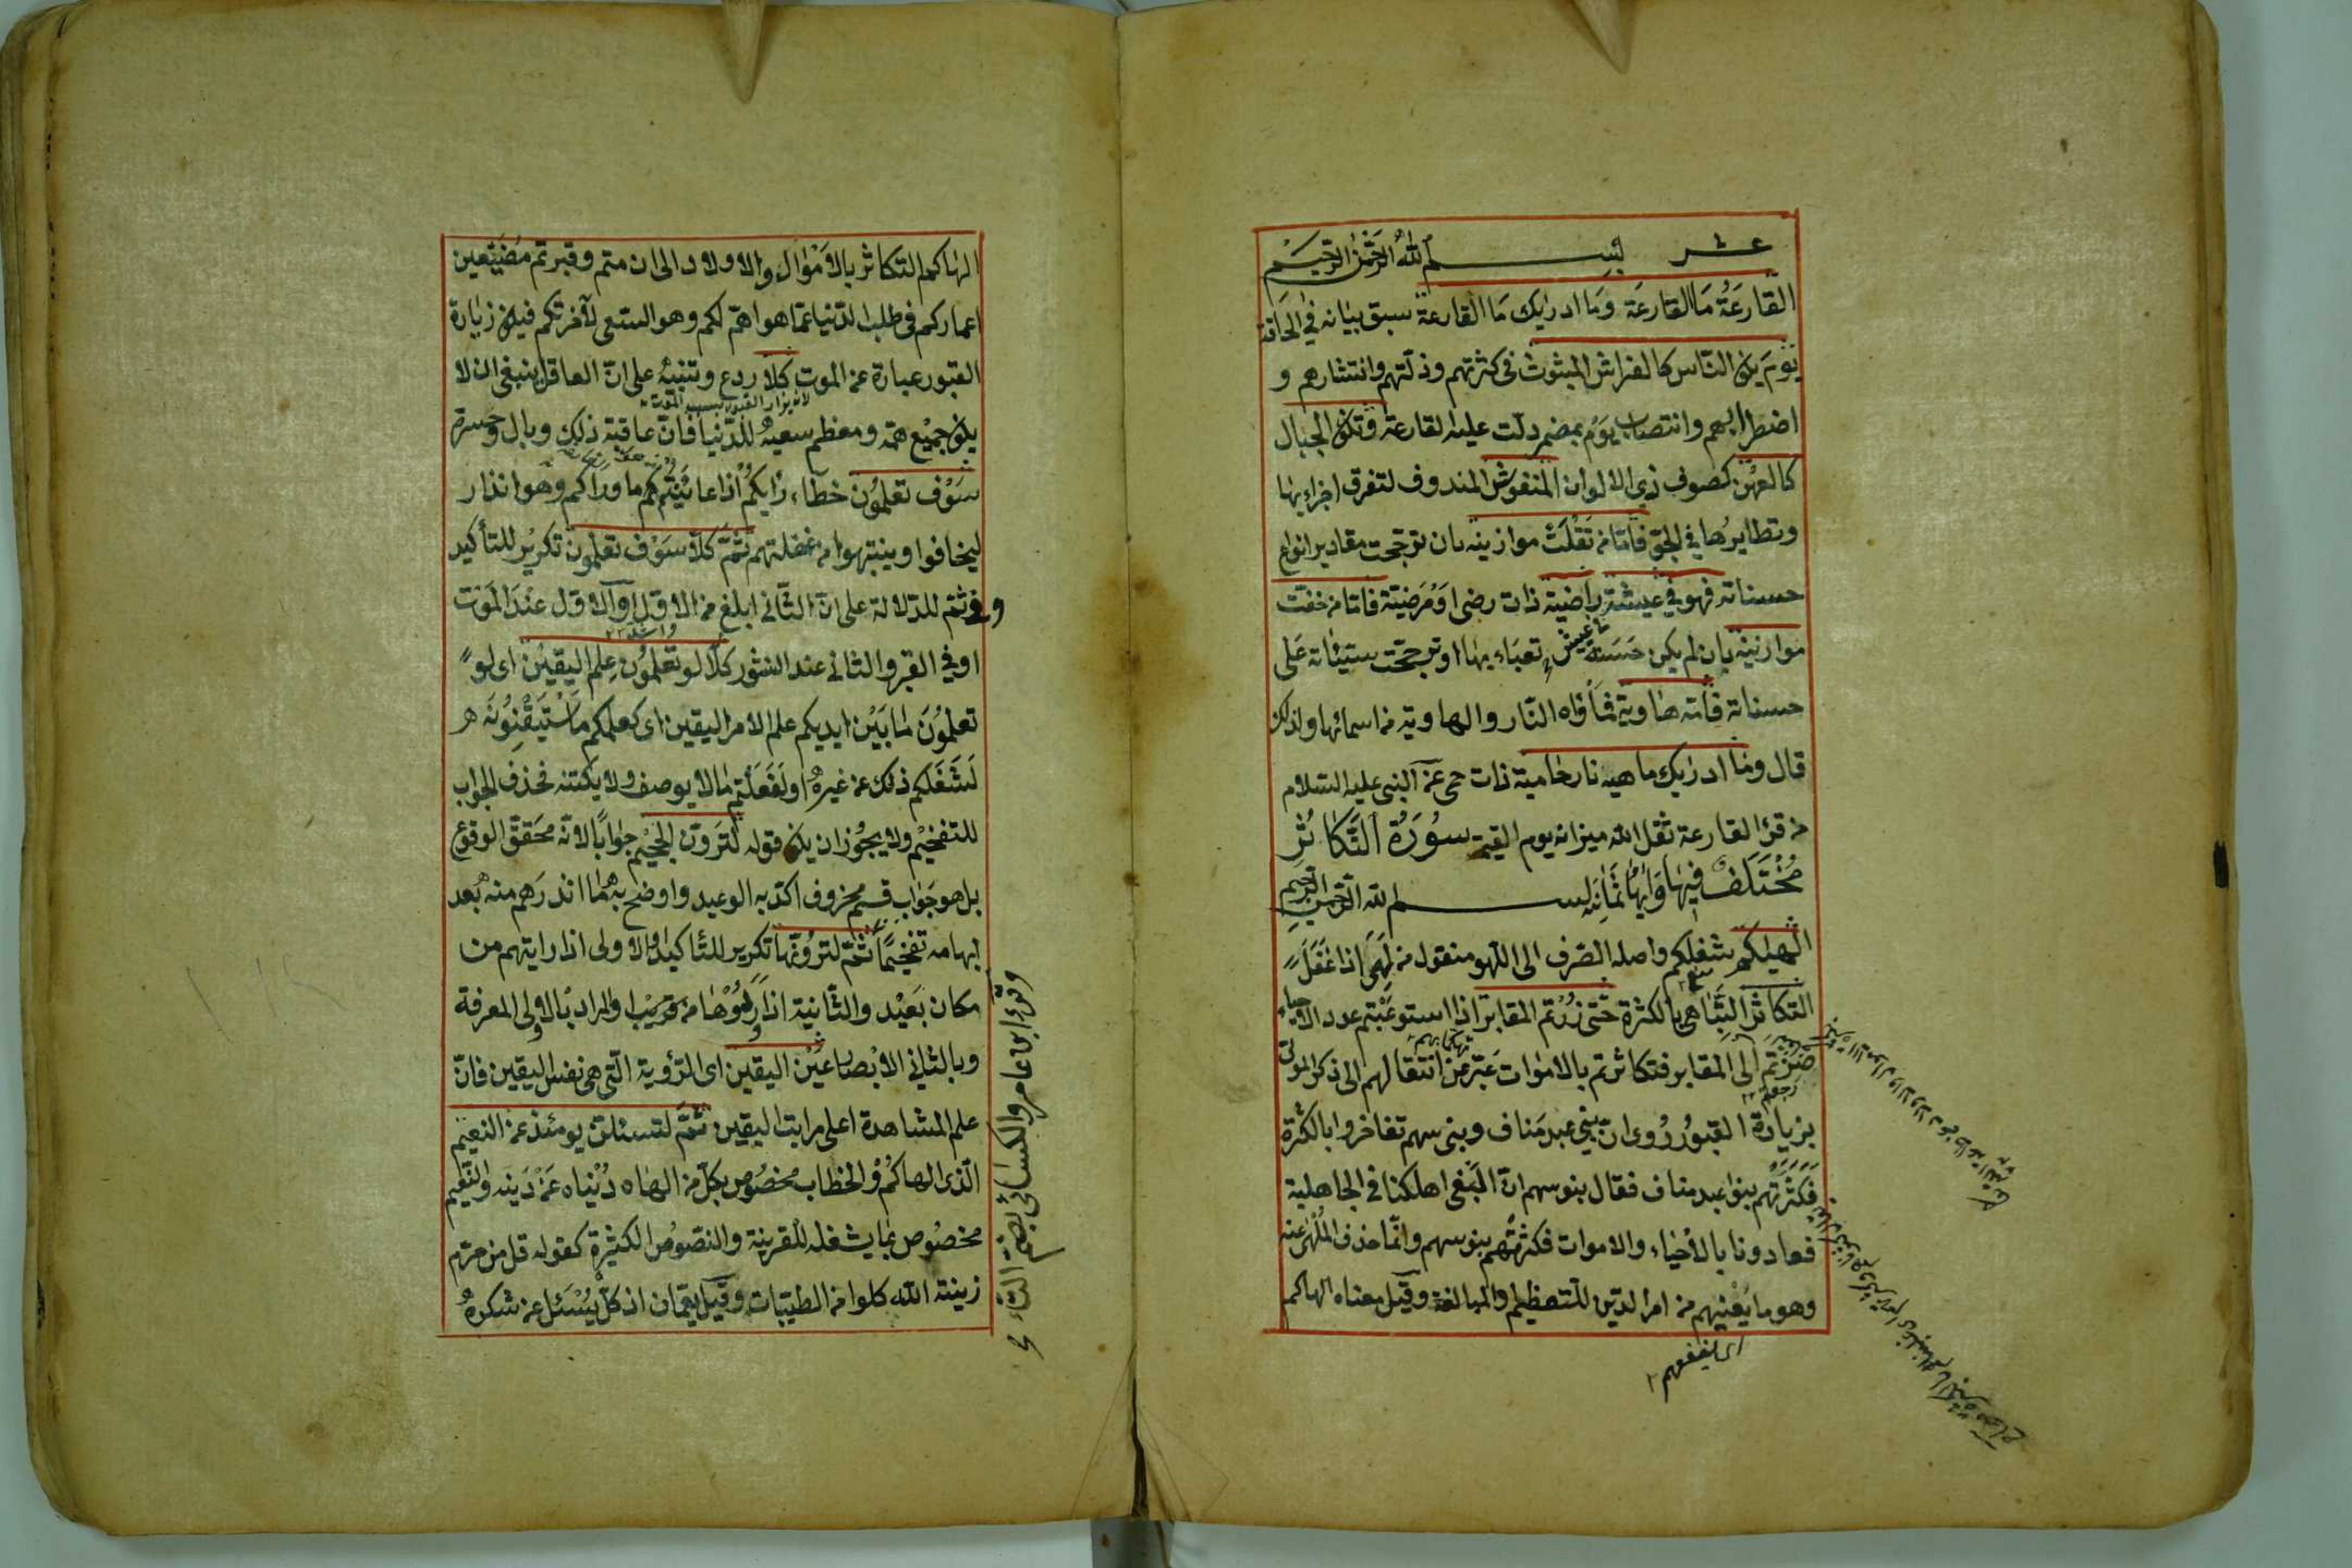 عشر بسم الله الرحمن الرحيم
القارعة ما القارعة وما ادريك ما القارعة سبق بيانه في الحاقة
يوم يكون الناس كالفراش المبثوث في كثرتهم وذلتهم وانتشارهم و
اضطرابهم وانتصاب يوم بمضمر دلت عليه القارعة وتكون الجبال
كالعهن كصوف ذي الالوان المنفوش المندوف لتفرق اجزايها
وتطايرها في الجو فاما من ثقلت موازينه بان ترجحت مقادير انواع
حسناته فهو في عيشة راضية ذات رضى او مرضية فاما من خفت
موازنيه بان لم يكن حسنة تعباء بها او ترجحت سيئاته على
حسناته فامه هاوية فمأواه النار والهاوية من اسمائها ولذلك
قال وما ادريك ما هيه نار حامية ذات حمى عن النبي عليه السلام
من قرا القارعة ثقل الله ميزانه يوم القيمة سورة التكاثر
مختلف فيها وآيها ثمانيه بسم الله الرحمن الرحيم
الهيكم شغلكم واصله الصرف الى اللهو منقول من لهى اذا غفل
التكاثر التباهي بالكثرة حتى زرتم المقابر اذا استوعبتم عدد الاحياء
صرتم الى المقابر فتكاثرتم بالاموات عبر عن انتقالهم الى ذكر الموتى
بزيارة القبور روى ان بني عبد مناف وبني سهم تفاخروا بالكثرة
فكثرتهم بنوا عبد مناف فقال بنو سهم ان البغى اهلكنا في الجاهلية
فعادونا بالأحياء والاموات فكثرتهم بنو سهم وانما حذف الملهى عنه
وهو ما يعنيهم من امر الدين للتعظيم والمبالغة وقيل معناه الهاكم
اى ينفعهم
الهاكم التكاثر بالاموال والاولاد الى ان متم وقبرتم مضيعين
اعماركم في طلب الدنيا عما هو اهم لكم وهو السعى لآخرتكم فيكون زيارة
القبور عبارة عن الموت كلا ردع وتنبيه على ان العاقل ينبغى ان لا
يكون جميع همه ومعظم سعيه للدنيا فان عاقبة ذلك وبال وحسرة
سوف تعلمون خطاء رأيكم اذا عاينتم ما وراكم وهو انذار
ليخافوا وينتبهوا من غفلتهم ثم كلا سوف تعلمون تكرير للتأكيد
وفي ثم للدلالة على ان الثاني ابلغ من الاول او الاول عند الموت
او في القبر والثاني عند النشور كلا لو تعلمون علم اليقين اى لو
تعلمون ما بين ايديكم علم الامر اليقين اى كعلمكم ما تستيقنونه
لشغلكم ذلك عن غيره او لفعلتم ما لا يوصف ولا يكتنه فحذف الجواب
للتفخيم ولا يجوز ان يكون قوله لترون الجحيم جوابا لانه محقق الوقوع
بل هو جواب قسم محزوف اكد به الوعيد واوضح به ما انذرهم منه بعد
ابهامه تفخيما ثم لترونها تكرير للتاكيد او الاولى اذا رايتهم من
مكان بعيد والثانية اذا وردوها من قريب او المراد بالاولى المعرفة
وبالثاني الابصار عين اليقين اى الرؤية التي هى نفس اليقين فان
علم المشاهدة اعلى مراتب اليقين ثم لتسئلن يومئذ عن النعيم
الذى الهاكم والخطاب مخصوص بكل من الهاه دنياه عن دينه والنعيم
مخصوص بما يشغله للقرينة والنصوص الكثيرة كقوله قل من حرم
زينة الله كلوا من الطيبات وقيل يعمان اذ كل يسئل عن شكره
وقرا ابن عامر والكسائي بضم التاء